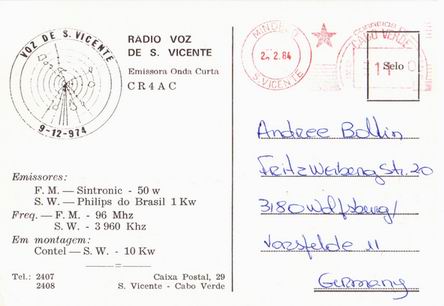 VOZ DE S. VICENTE
9-12-974
RADIO VOZ
DE S. VICENTE
Emissora Onda Curta
CR4AC
Emissores:
F. M. — Sintronic - 50 w
S. W. — Philips do Brasil 1 Kw
Freq. — F. M. - 96 Mhz
S. W. - 3 960 Khz
Em montagem:
Contel — S. W. - 10 Kw
Tel.: 2407
2408
Caixa Postal, 29
S. Vicente - Cabo Verde
2. 2. 84
S. VICENTE
CABO VERDE
Selo
Andree Bollin
Fritz Weiberg Str. 20
3180 Wolfsburg/
Vorsfelde 11
Germany